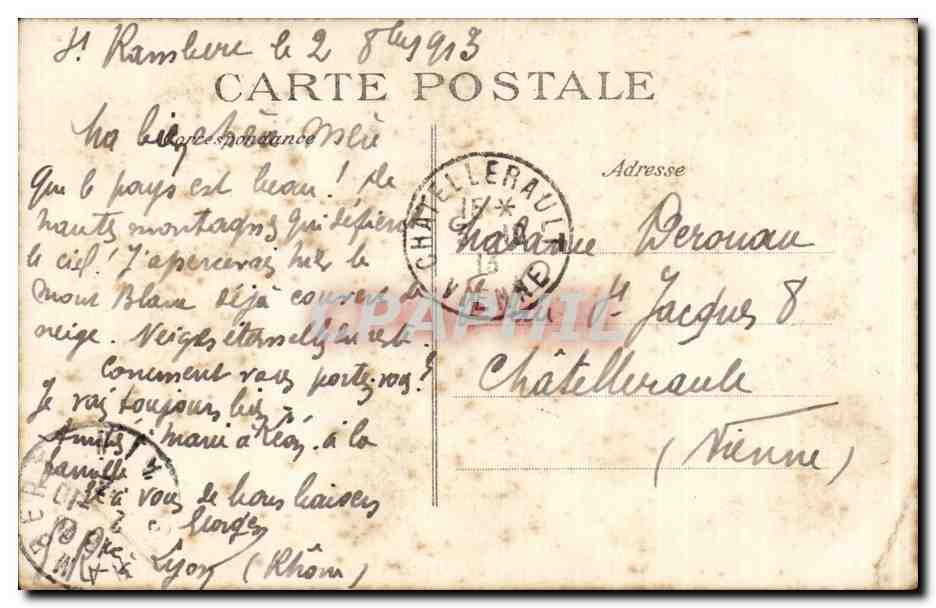 St Rambert le 2 8bre 1913
CARTE POSTALE
Correspondance
Adresse
Ma bien chère Mère
Que le pays est beau ! De
hautes montagnes qui défient
le ciel ! J'apercevais hier le
Mont Blanc déjà couvert de
neige. Neiges éternelles
Comment vous portez-vous ?
Je vais toujours bien
Amitiés à Marie à Léon. à la
famille
et à vous de bons baisers
Georges
Lyon (Rhône)
CHATELLERAULT
15 *
13
VIENNE
Madame Derouau
St Jacques 8
Châtellerault
(Vienne)
CPAPHIL